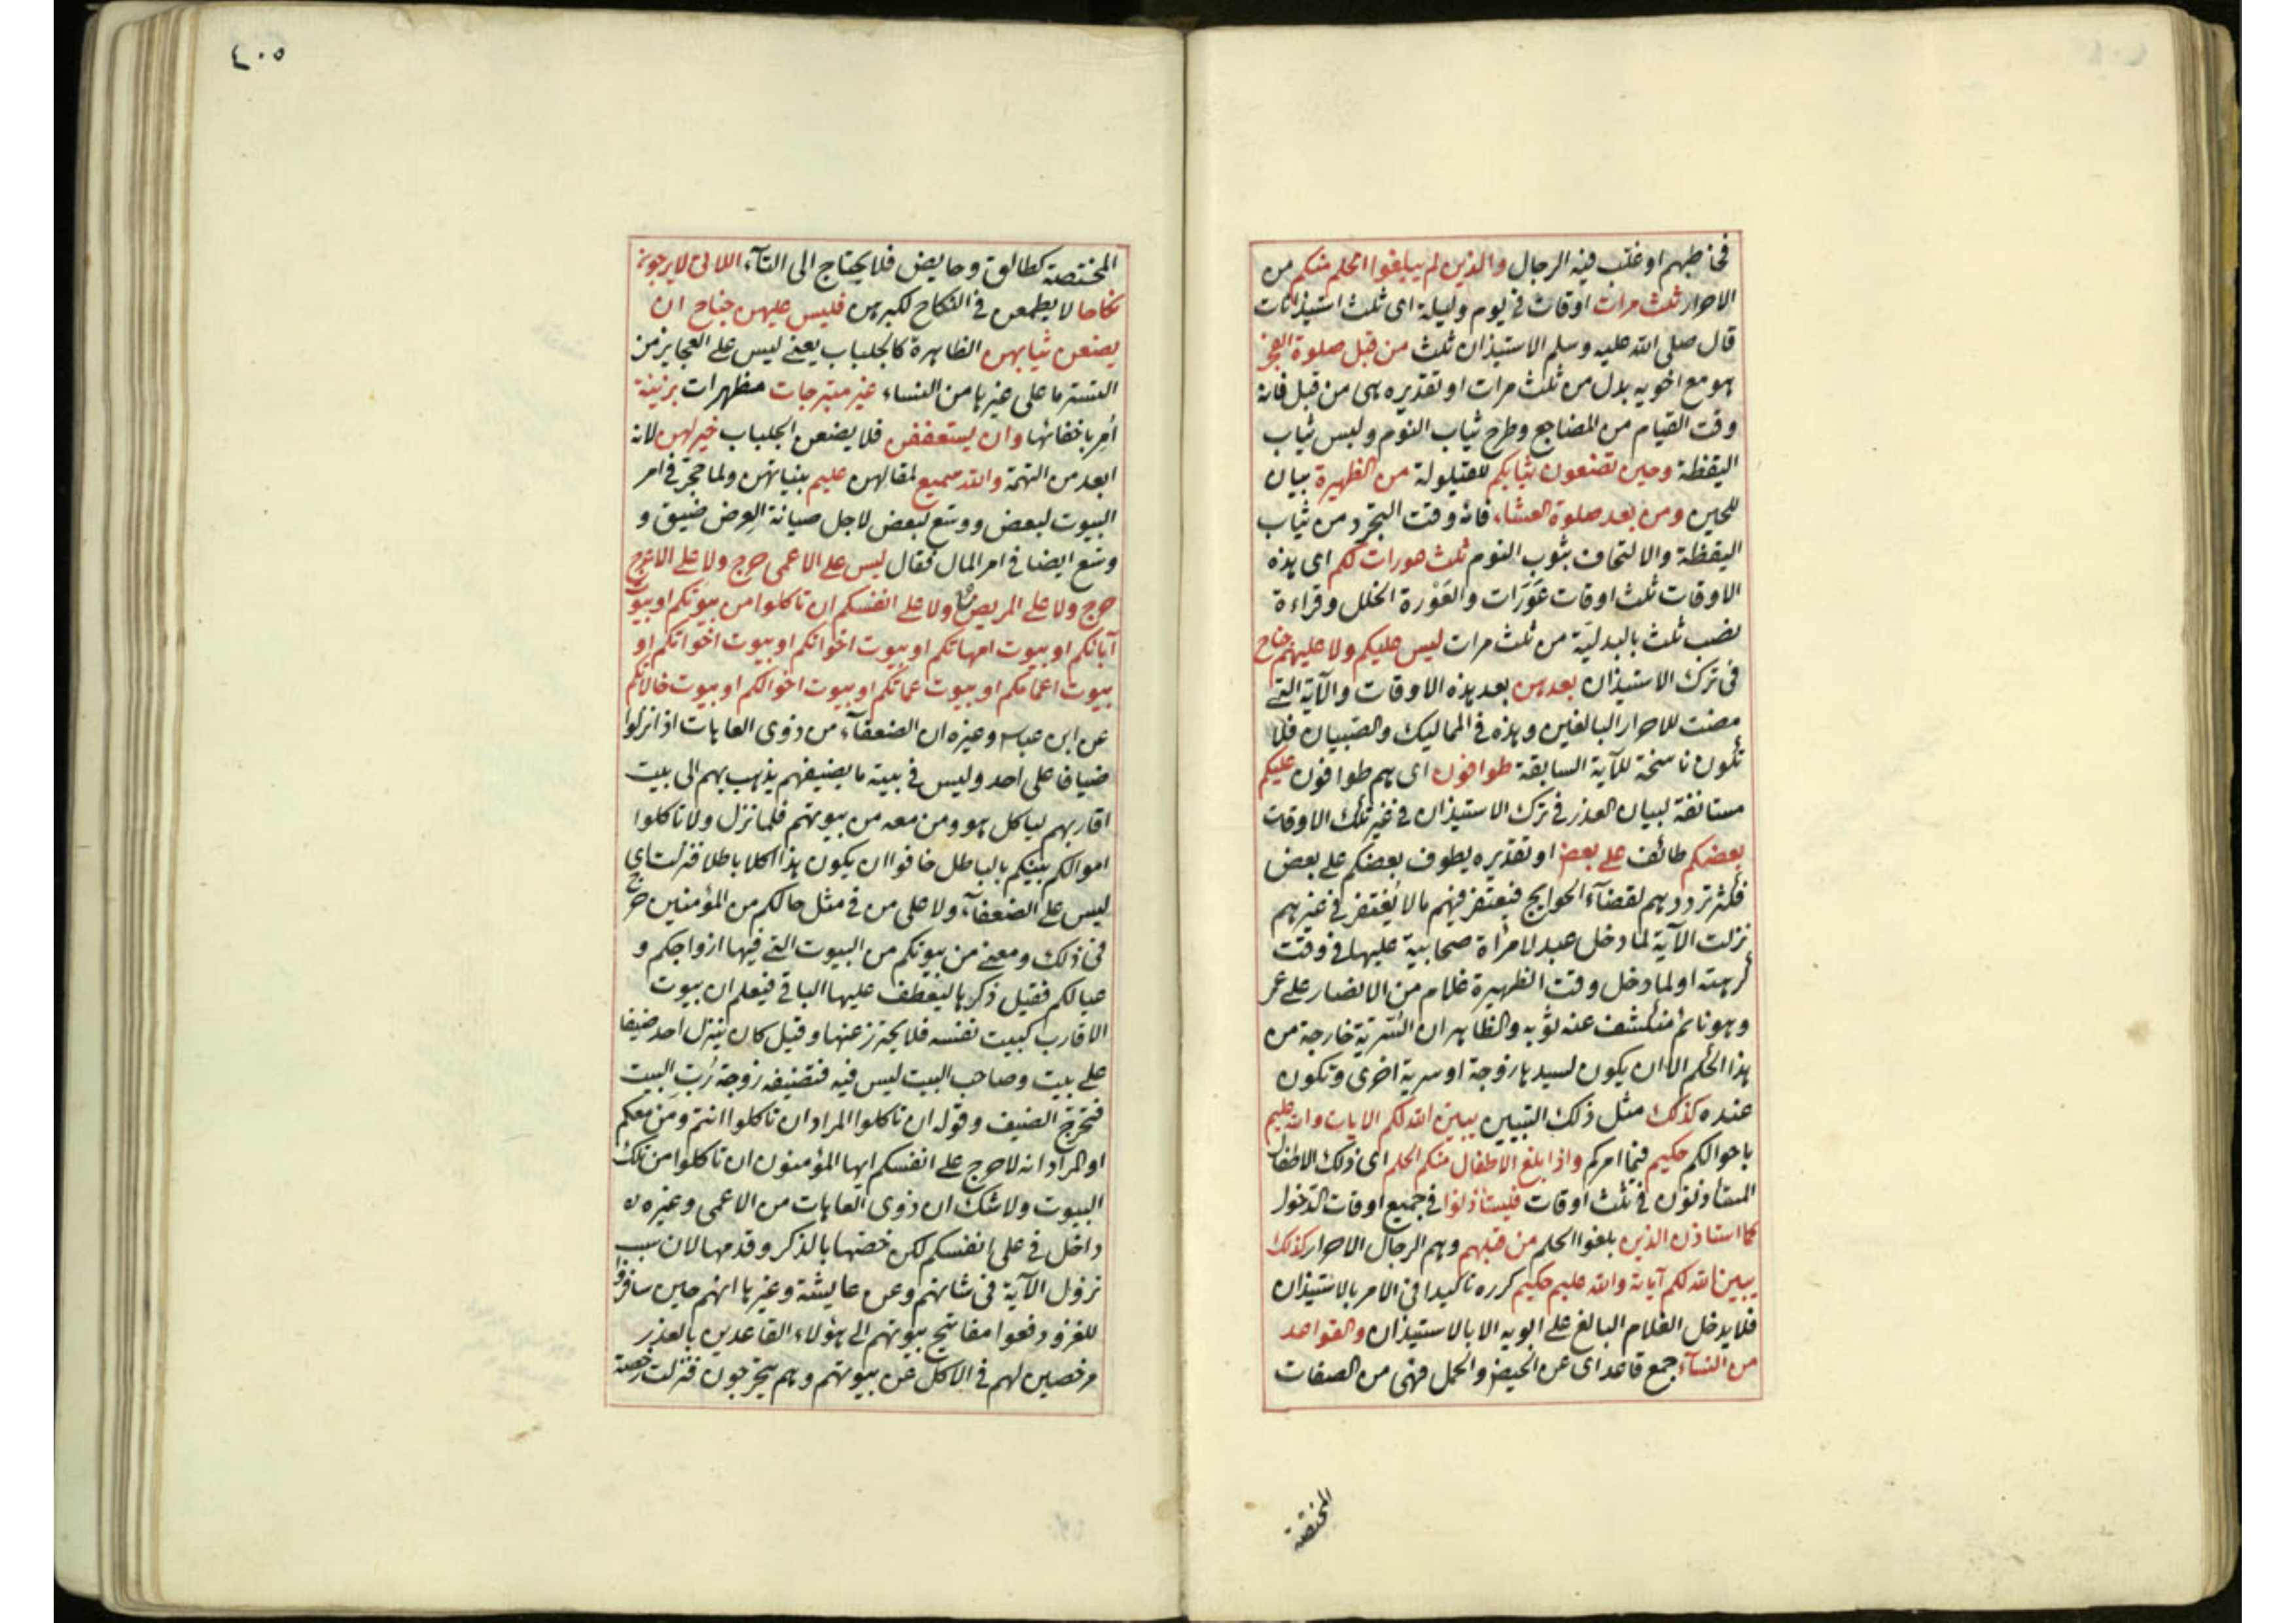 فخاطبهم او غلب فيه الرجال والذين لم يبلغوا الحلم منكم من
الاحرار ثلث مرات اوقات في يوم وليلة اى ثلث استيذانات
قال صلى الله عليه وسلم الاستيذان ثلث من قبل صلوة الفجر
هو مع اخويه بدل من ثلث مرات او تقديره هى من قبل فانه
وقت القيام من المضاجع وطرح ثياب النوم ولبس ثياب
اليقظة وحين تضعون ثيابكم للقيلولة من الظهيرة بيان
للحين ومن بعد صلوة العشاء فانه وقت التجرد من ثياب
اليقظة والالتحاف بثوب النوم ثلث عورات لكم اى هذه
الاوقات ثلث اوقات عورات والعورة الخلل وقراءة
نصب ثلث بالبدلية من ثلث مرات ليس عليكم ولا عليهم جناح
فى ترك الاستيذان بعدهن بعد هذه الاوقات والآية التى
مضت للاحرار البالغين وهذه فى المماليك والصبيان فلا
تكون ناسخة للآية السابقة طوافون اى هم طوافون عليكم
مستانفة لبيان العذر فى ترك الاستيذان فى غير تلك الاوقات
بعضكم طائف على بعض او تقديره يطوف بعضكم على بعض
فكثر ترددهم لقضاء الحوايج فيغتفر فيهم ما لا يغتفر فى غيرهم
نزلت الآية لما دخل عبد لامرأة صحابية عليها فى وقت
كرهته او لما دخل وقت الظهيرة غلام من الانصار على عمر
وهو نائم منكشف عنه ثوبه والظاهر ان السرية خارجة من
هذا الحكم الا ان يكون لسيدها زوجة او سرية اخرى وتكون
عنده كذلك مثل ذلك التبيين يبين الله لكم الايات والله عليم
باحوالكم حكيم فيما امركم واذا بلغ الاطفال منكم الحلم اى ذلك الاطفال
المستاذنون فى ثلث اوقات فليستأذنوا فى جميع اوقات الدخول
كما استاذن الذين بلغوا الحلم من قبلهم وهم الرجال الاحرار كذلك
يبين الله لكم آياته والله عليم حكيم كرره تاكيدا فى الامر بالاستيذان
فلا يدخل الغلام البالغ على ابويه الا بالاستيذان والقواعد
من النسآء جمع قاعد اى عن الحيض والحمل فهى من الصفات
المختصة
٤٠٥
المختصة كطالق وحايض فلا يحتاج الى التآء اللاتى لا يرجون
نكاحا لا يطمعن فى النكاح لكبرهن فليس عليهن جناح ان
يضعن ثيابهن الظاهرة كالجلباب يعنى ليس على العجايز من
التستر ما على غيرها من النساء غير متبرجات مظهرات بزينة
أمر باخفائها وان يستعففن فلا يضعن الجلباب خير لهن لانه
ابعد من التهمة والله سميع لمقالهن عليم بنياتهن ولما حجر فى امر
البيوت لبعض ووسع لبعض لاجل صيانة العرض ضيق و
وسع ايضا فى امر المال فقال ليس على الاعمى حرج ولا على الاعرج
حرج ولا على المريض ولا على انفسكم ان تاكلوا من بيوتكم او بيوت
آبائكم او بيوت امهاتكم او بيوت اخوانكم او بيوت اخواتكم او
بيوت اعمامكم او بيوت عماتكم او بيوت اخوالكم او بيوت خالاتكم
عن ابن عباس وغيره ان الضعفآء من ذوى العاهات اذا نزلوا
ضيافا على احد وليس فى بيته ما يضيفهم يذهب بهم الى بيت
اقاربهم لياكل هو ومن معه من بيوتهم فلما نزل ولا تاكلوا
اموالكم بينكم بالباطل خافوا ان يكون هذا اكلا باطلا فنزلت اى
ليس على الضعفآء ولا على من فى مثل حالكم من المؤمنين حرج
فى ذلك ومعنى من بيوتكم من البيوت التى فيها ازواجكم و
عيالكم فقيل ذكرها ليعطف عليها الباقى فيعلم ان بيوت
الاقارب كبيت نفسه فلا يحترز عنها وقيل كان ينزل احد ضيفا
على بيت وصاحب البيت ليس فيه فتضيفه زوجة رب البيت
فتحرج الضيف وقوله ان تاكلوا المراد ان تاكلوا انتم ومن معكم
او المراد انه لا حرج على انفسكم ايها المؤمنون ان تاكلوا من تلك
البيوت ولا شك ان ذوى العاهات من الاعمى وغيره
داخل فى على انفسكم لكن خصها بالذكر وقدمها لان سبب
نزول الآية فى شانهم وعن عايشة وغيرها انهم حين سافروا
للغزو دفعوا مفاتيح بيوتهم الى هؤلاء القاعدين بالعذر
مرخصين لهم فى الاكل عن بيوتهم وهم يتحرجون فنزلت رخصة